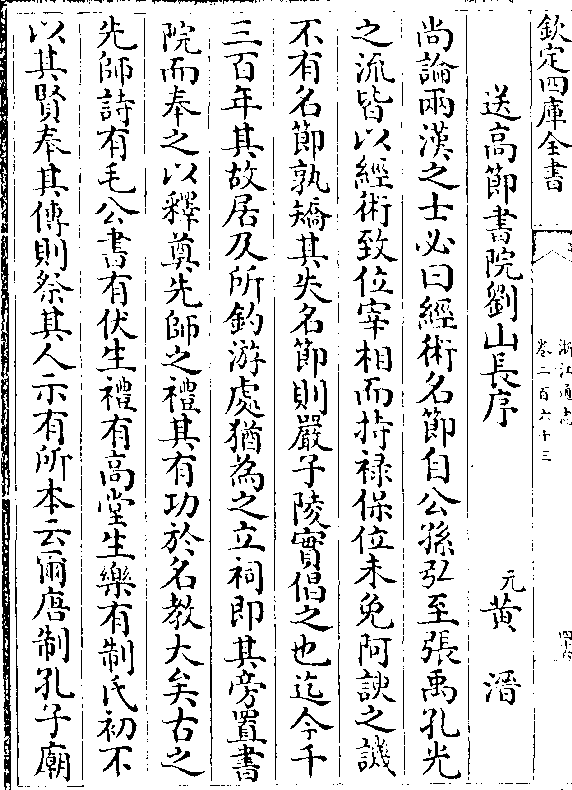 欽定四庫全書
浙江通志
卷二百六十三
四十六
送高節書院劉山長序
元黄溍
尚論兩漢之士必曰經術名節自公孫弘至張禹孔光
之流皆以經術致位宰相而持禄保位未免阿諛之譏
不有名節孰矯其失名節則嚴子陵實倡之也迄今千
三百年其故居及所釣游處猶為之立祠即其旁置書
院而奉之以釋奠先師之禮其有功於名教大矣古之
先師詩有毛公書有伏生禮有高堂生樂有制氏初不
以其賢奉其傳則祭其人示有所本云爾唐制孔子廟